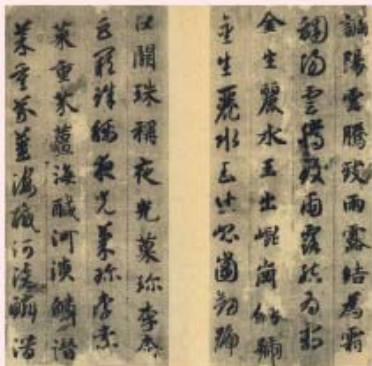 調陽雲騰致雨露結為霜
調陽雲騰致雨露結為霜
金生麗水玉出崑崗劍號
金生麗水玉出崑崗劍號
巨闕珠稱夜光菓珍李柰
巨闕珠稱夜光菓珍李柰
菜重芥薑海醎河淡鱗潜
菜重芥薑海醎河淡鱗潜